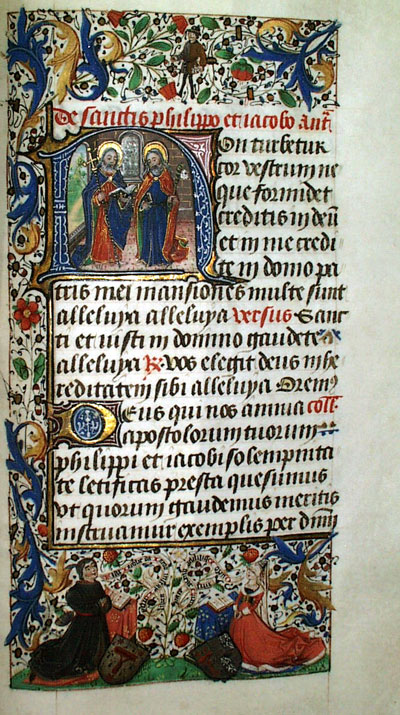 De sanctis philippo et iacobo ant
Non turbetur
cor vestrum ne
que formidet
creditis in deū
et in me credi
te in domo pa
tris mei mansiones multe sunt
alleluya alleluya versus Sanc
ti et iusti in domino gaudete
alleluya R. Vos elegit deus in he
reditatem sibi alleluya Oremꝰ
Deus qui nos annua coll.
apostolorum tuorum
philippi et iacobi solempnita
te letificas presta quesumus
vt quorum gaudemus meritis
instruamur exemplis per dnm̄